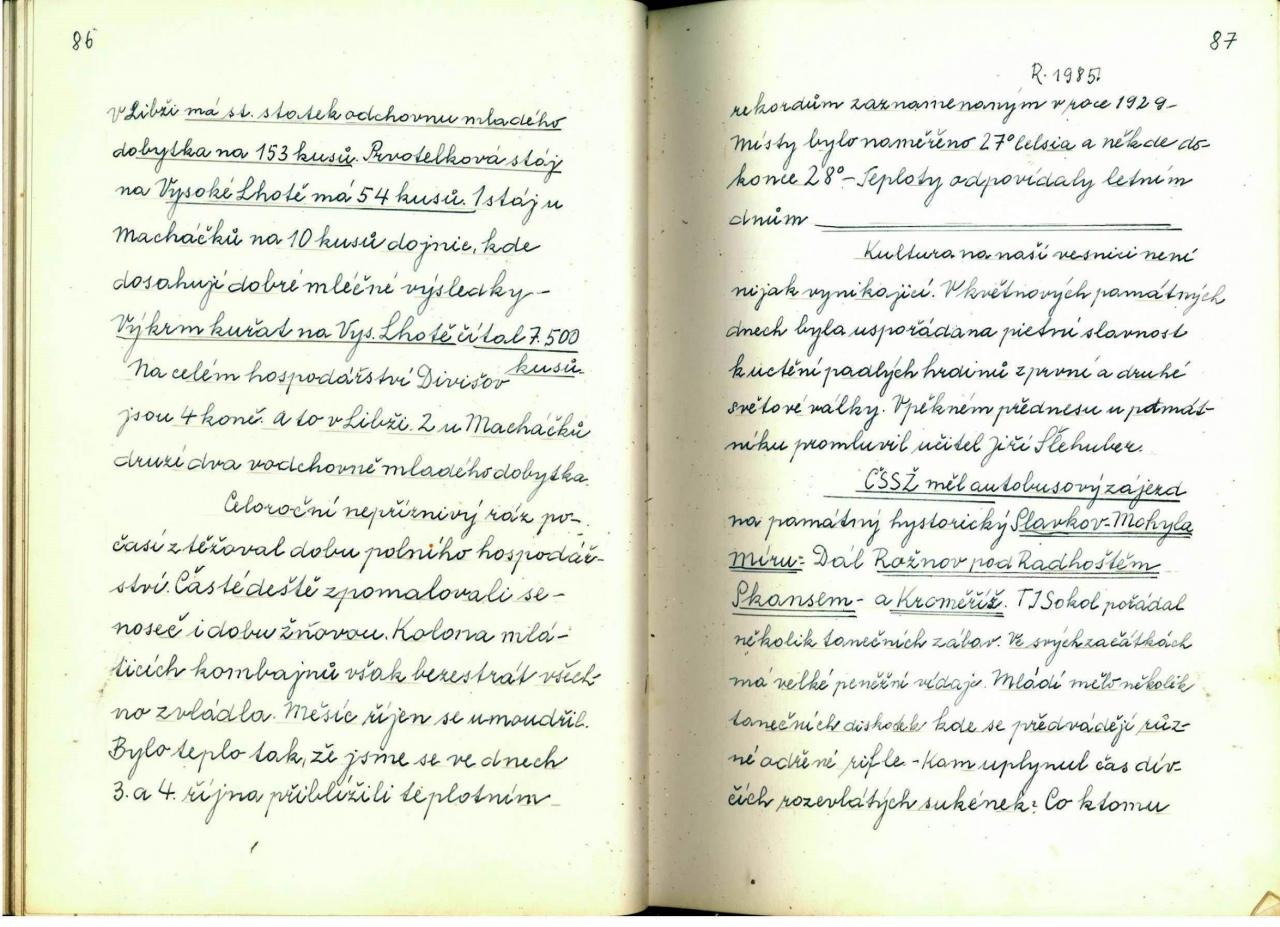 86
v Libži má st. statek odchovnu mladého
dobytka na 153 kusů. Prvotelková stáj
na Vysoké Lhotě má 54 kusů. 1 stáj u
Macháčků na 10 kusů dojnic, kde
dosahují dobré mléčné výsledky -
Výkrm kuřat na Vys. Lhotě čítal 7.500
kusů.
Na celém hospodářství Divišov
jsou 4 koně. a to v Libži. 2 u Macháčků
druzí dva v odchovně mladého dobytka.
Celoroční nepříznivý ráz po-
časí ztěžoval dobu polního hospodář-
ství. Časté deště zpomalovali se-
noseč i dobu žňovou. Kolona mlá-
tících kombajnů však bezestrát všech-
no zvládla. Měsíc říjen se umoudřil.
Bylo teplo tak, že jsme se ve dnech
3. a 4. října přiblížili teplotním
87
R. 1985.
rekordům zaznamenaným v roce 1929-
Místy bylo naměřeno 27° Celsia a někde do-
konce 28° - Teploty odpovídaly letním
dnům
Kultura na naší vesnici není
nijak vynikající. V květnových památných
dnech byla uspořádana pietní slavnost
k uctění padlých hrdinů z první a druhé
světové války. V pěkném přednesu u památ-
níku promluvil učitel Jiří Šlehuber.
ČSSŽ měl autobusový zájezd
na památný hystorický Slavkov - Mohyla
míru - Dál Rožnov pod Radhoštěm
Skansem - a Kroměříž. TJ Sokol pořádal
několik tanečních zábav. Ve svých začátkách
má velké peněžní vídaje. Mládí mělo několik
tanečních diskotek kde se předvádějí růz-
né odřené rifle - Kam uplynul čas dív-
čích rozevlátých sukének? Co k tomu